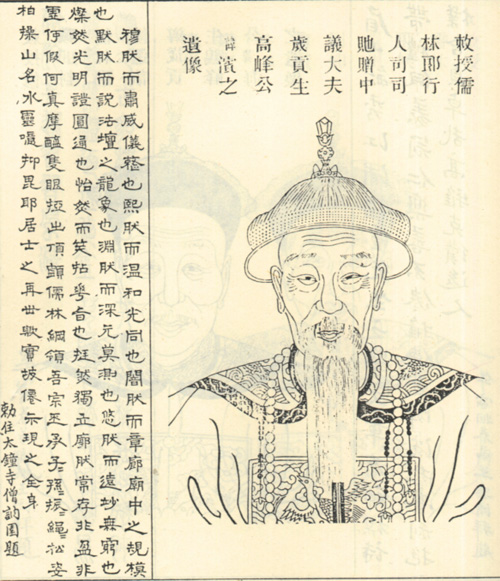 敕授儒
林郎行
人司司
貤贈中
議大夫
歲貢生
高峰公
諱濱之
遺像
穆肰而肅威儀也熙肰而溫和光同也闇肰而章廊廟中之規模
也默肰而說法壇之龍象也淵肰而深元莫測也悠肰而遠妙無窮也
燦然光明證圓通也怡然而笑拈華旨也挺然獨立廓肰常存非盈非
虛伊假何真摩醯隻眼出頂儒林綱領吾宗玉承子〻孫〻振〻繩〻松姿
柏操山名水靈噫抑毘耶居士之再世歟實坡僊示現之全身
勅住太鐘寺僧訥園題